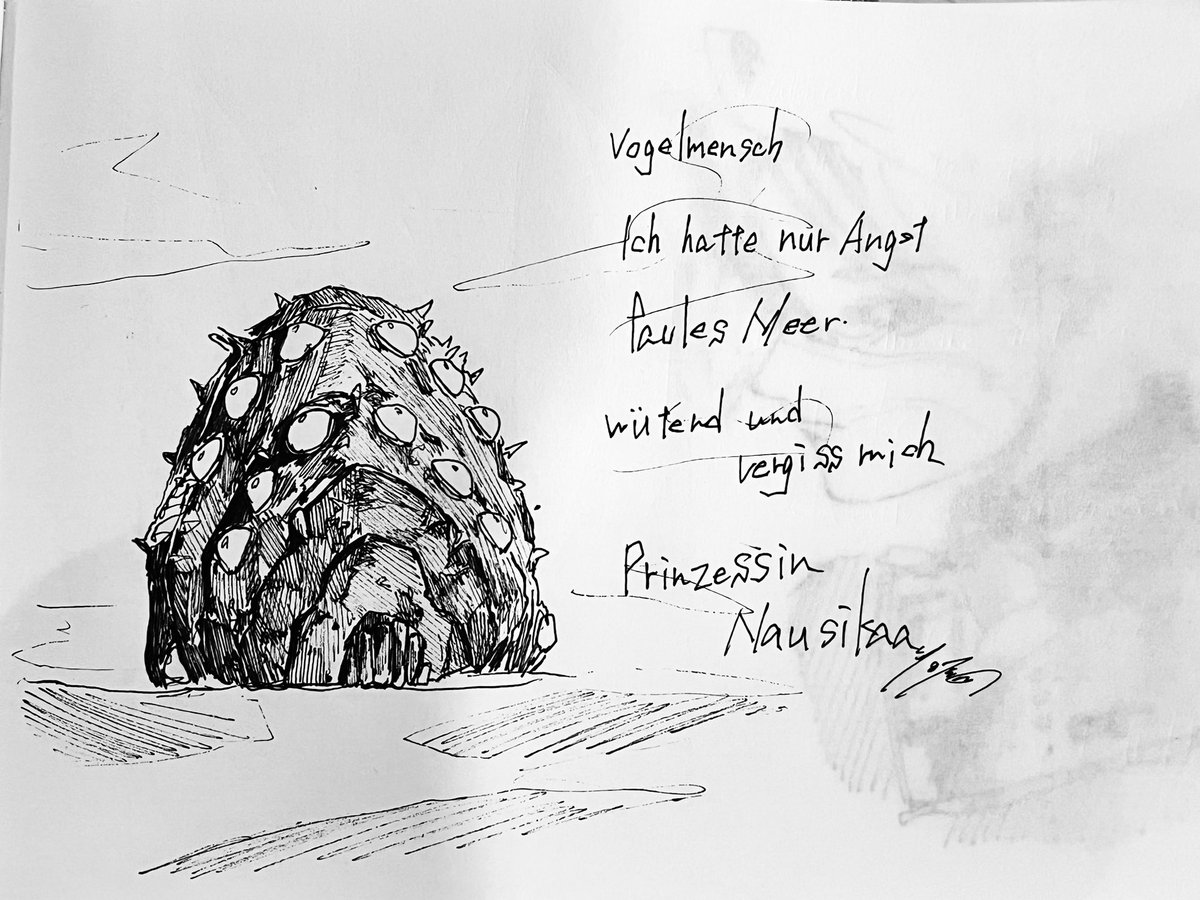 Vogelmensch
Ich hatte nur Angst
faules Meer.
wütend und
vergiss mich
Prinzessin
Nausikaa